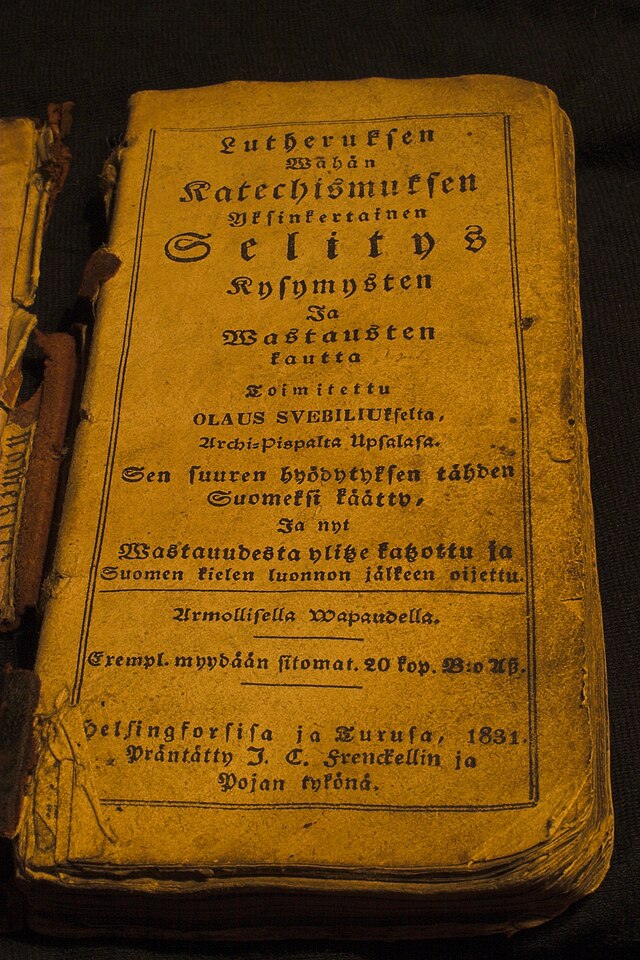 Lutheruksen
Wähän
Katechismuksen
Yksinkertainen
Selitys
Kysymysten
Ja
Wastausten
kautta
Toimitettu
OLAUS SVEBILIUkselta,
Archi-Pispalta Upsalasa.
Sen suuren hyödytyksen tähden
Suomeksi käätty,
Ja nyt
Wastauudesta ylitze katzottu ja
Suomen kielen luonnon jälkeen oijettu.
Armollisella Wapaudella.
Exempl. myydään sitomat. 20 kop. B:o Aß.
Helsingforsisa ja Turusa, 1831.
Präntätty J. C. Frenckellin ja
Pojan tykönä.